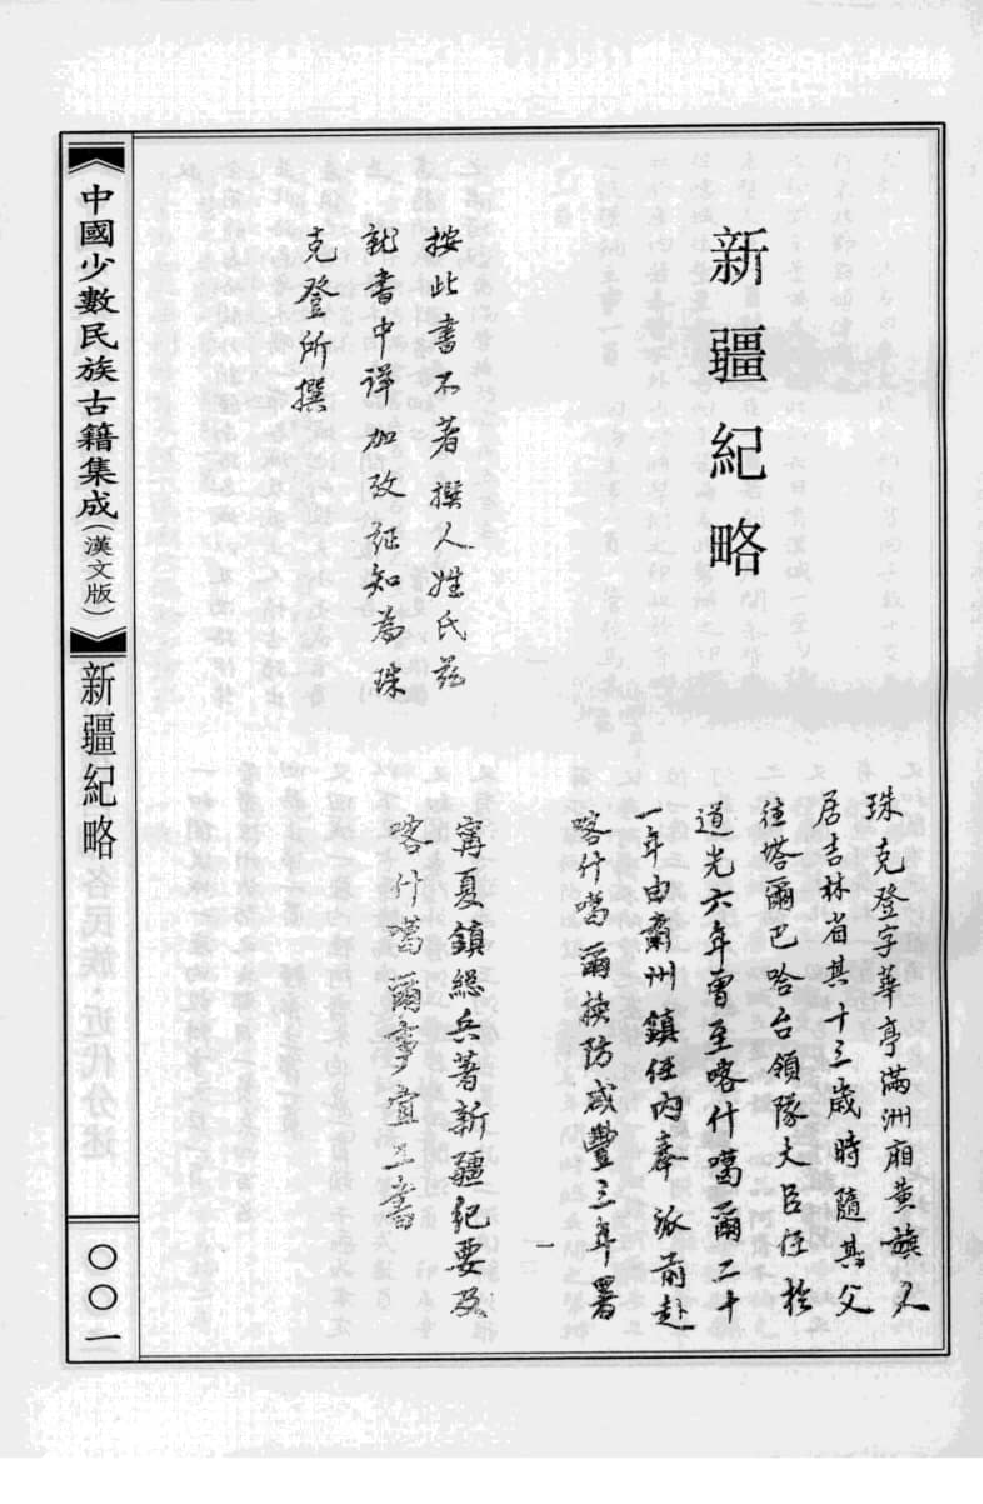 新疆紀略
按此書不著撰人姓氏茲
就書中详加攷証知為珠
克登所撰
珠克登字華亭滿洲廂黄旗人
居吉林省其十三歲時隨其父
往塔爾巴哈台領隊大臣任於
道光六年曾至喀什噶爾二十
一年由肅州鎮任内奉派前赴
喀什噶爾换防咸豐三年署
寗夏鎮總兵著新疆紀要及
喀什噶爾事宜二書
一
《中國少數民族古籍集成（漢文版）》
新疆紀略
〇〇一